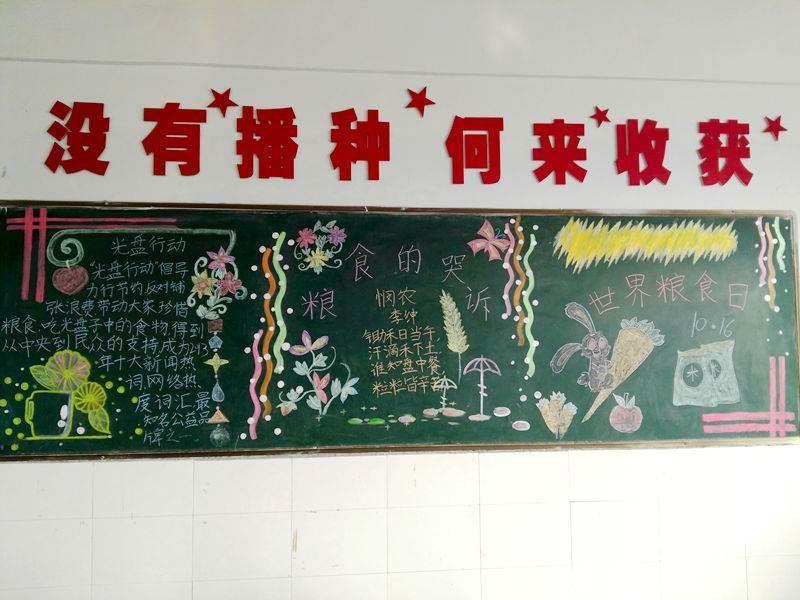 没有播种 何来收获
光盘行动
“光盘行动”倡导
力行节约反对铺
张浪费带动大家珍惜
粮食、吃光盘子中的食物,得到
从中央到民众的支持,成为2013
年十大新闻热
词,网络热
度词汇最
知名公益品
牌之一
粮食的哭诉
悯农
李绅
锄禾日当午,
汗滴禾下土
谁知盘中餐
粒粒皆辛苦
世界粮食日
10.16
大 米